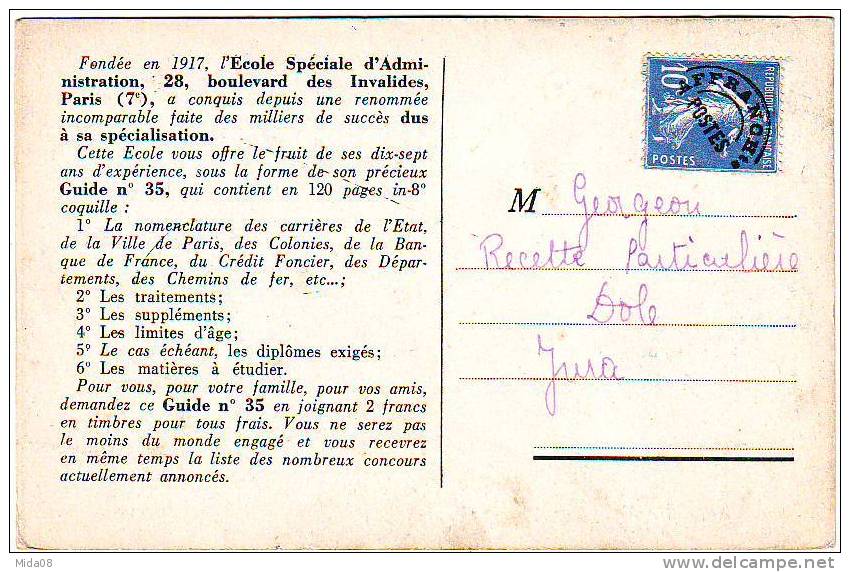 Fondée en 1917, l'École Spéciale d'Admi-
nistration, 28, boulevard des Invalides,
Paris (7e), a conquis depuis une renommée
incomparable faite des milliers de succès dus
à sa spécialisation.
Cette Ecole vous offre le fruit de ses dix-sept
ans d'expérience, sous la forme de son précieux
Guide n° 35, qui contient en 120 pages in-8°
coquille :
1° La nomenclature des carrières de l'Etat,
de la Ville de Paris, des Colonies, de la Ban-
que de France, du Crédit Foncier, des Dépar-
tements, des Chemins de fer, etc...;
2° Les traitements;
3° Les suppléments;
4° Les limites d'âge;
5° Le cas échéant, les diplômes exigés;
6° Les matières à étudier.
Pour vous, pour votre famille, pour vos amis,
demandez ce Guide n° 35 en joignant 2 francs
en timbres pour tous frais. Vous ne serez pas
le moins du monde engagé et vous recevrez
en même temps la liste des nombreux concours
actuellement annoncés.
10c
RÉPUBLIQUE FRANÇAISE
AFFRANCHts
POSTES
POSTES
M Georgeon
Recette Particulière
Dole
Jura
Mida08
delcampe.net